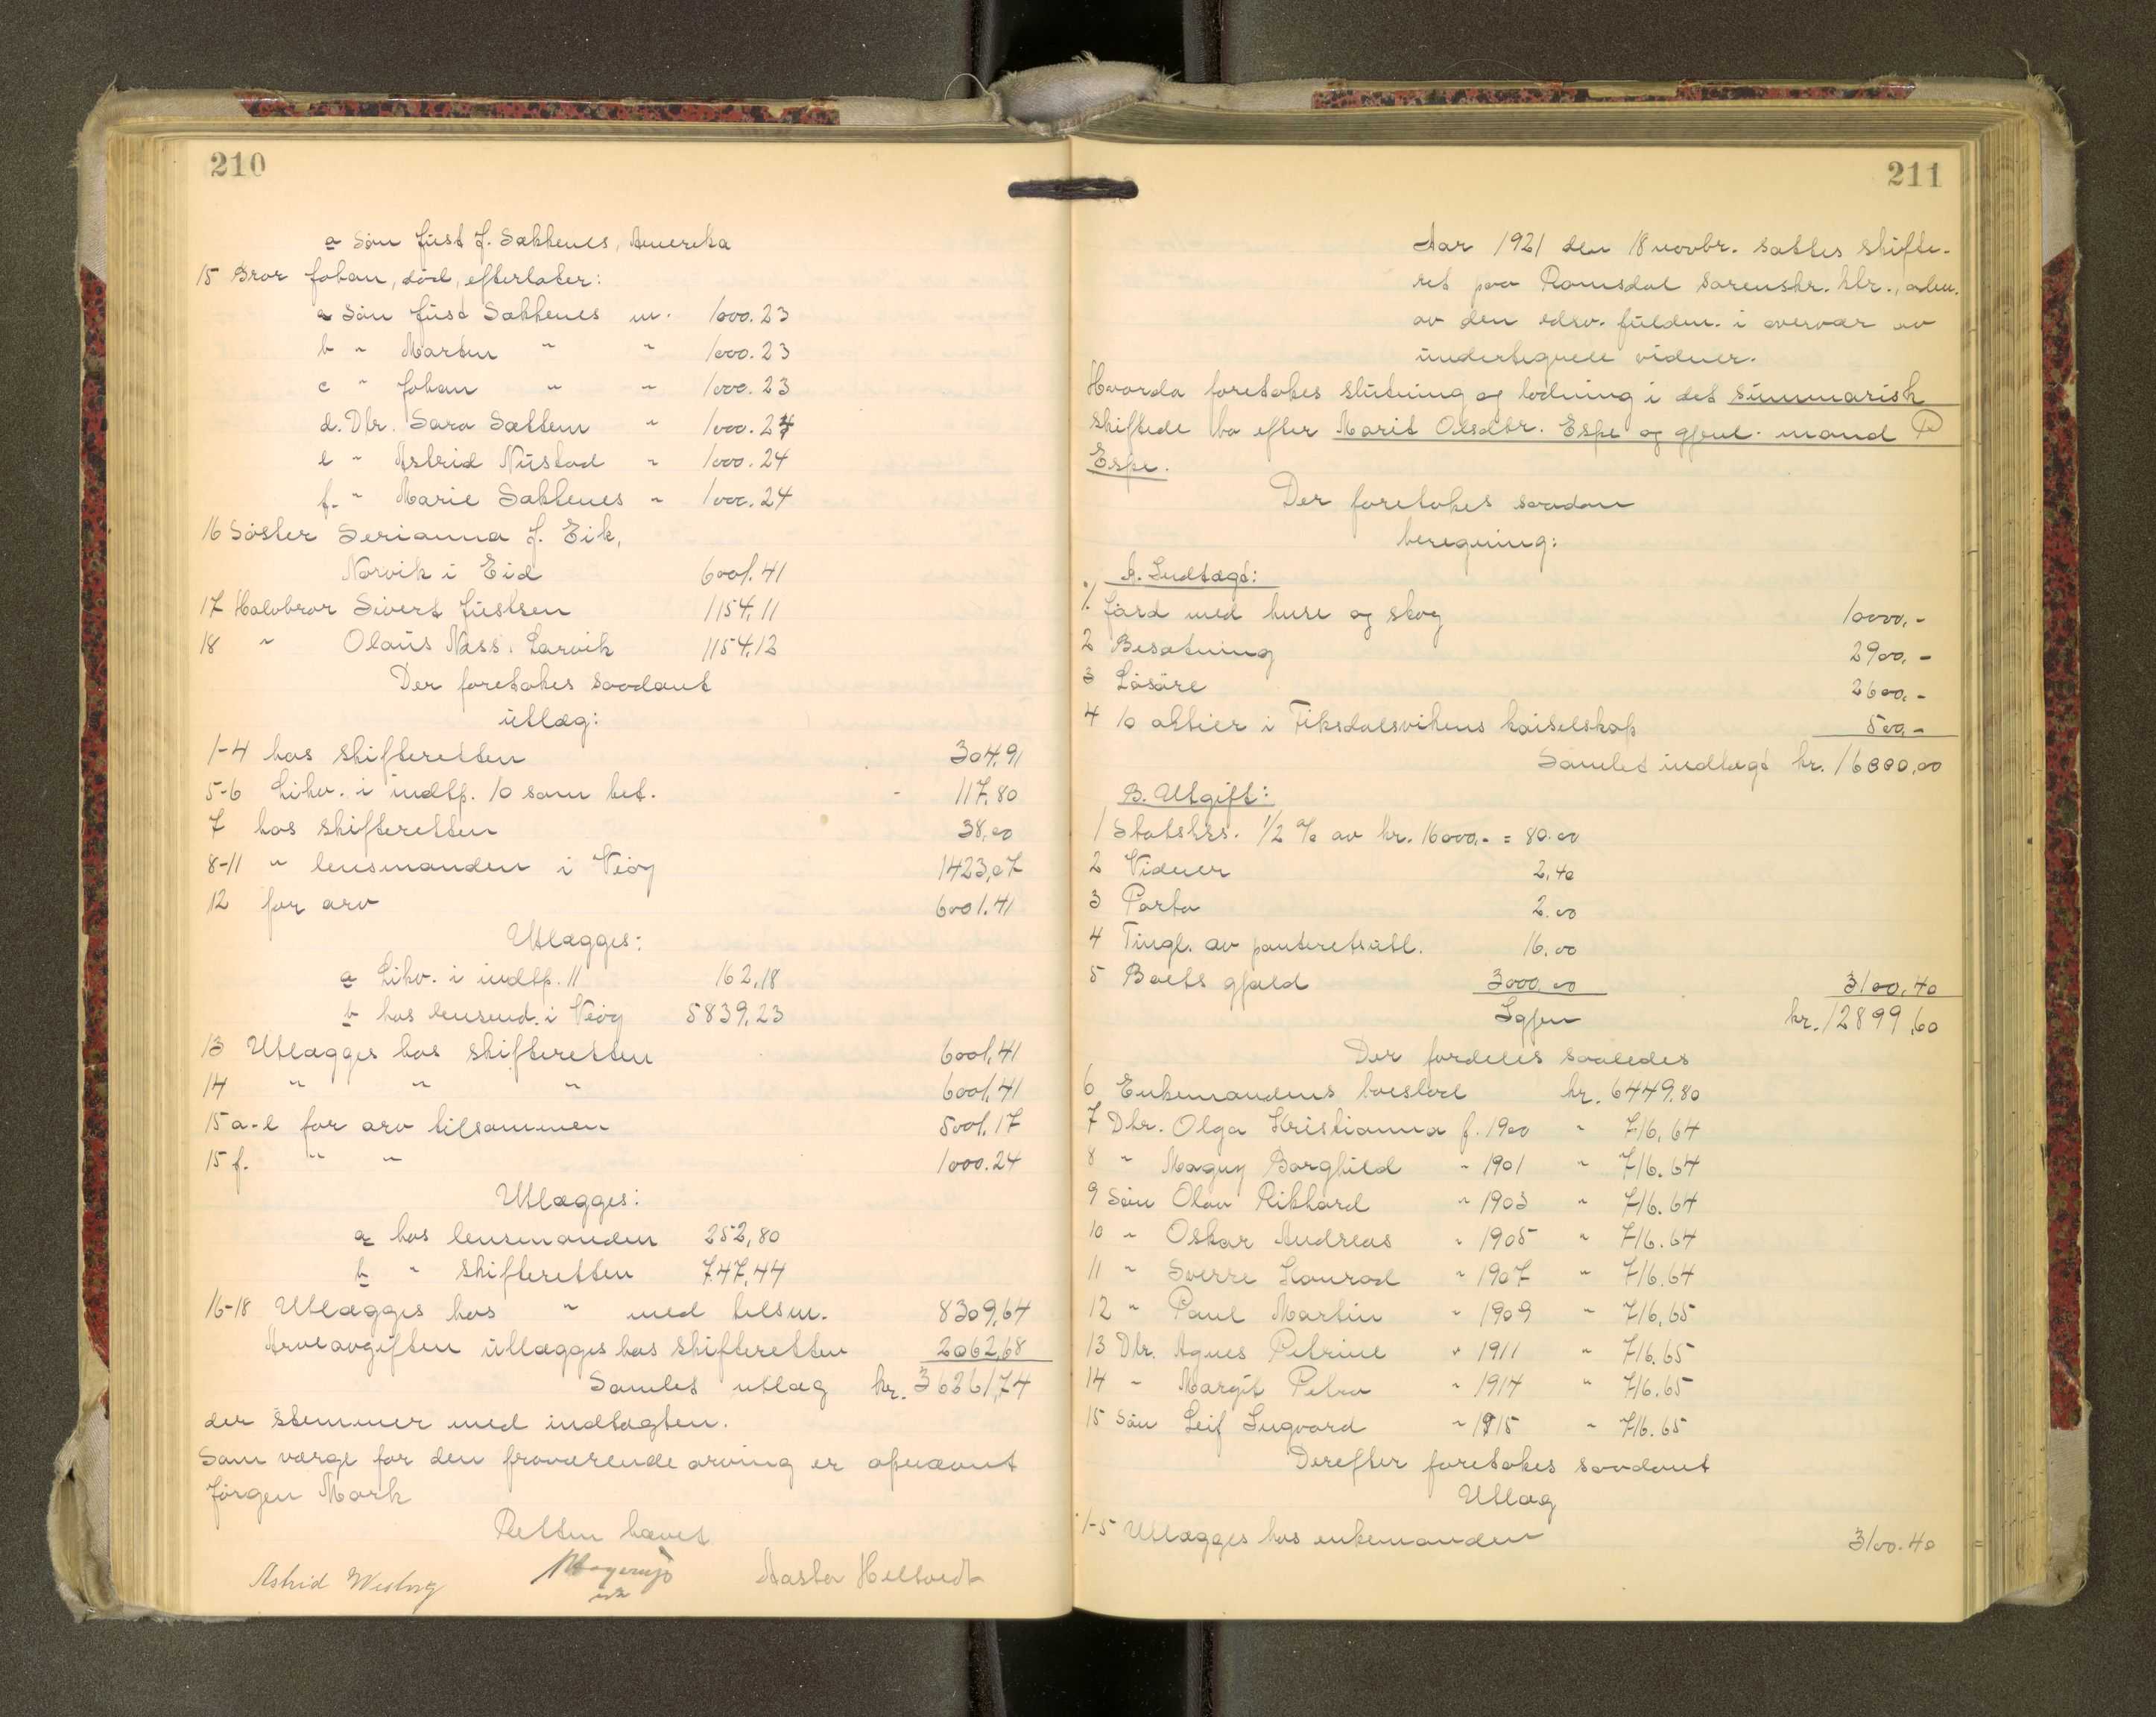 210
a Søn Just J. Sækkenes, Amereka
15 Bror Johan, død, efterlater:
a Søn Just Sækkenes m. 1000.23
b " Martin " " 1000.23
c " Johan " " 1000.23
d. Dtr. Sara Sættem " 1000.24
e " Astrid Nustad " 1000.24
f. " Marie Sækkenes " 1000.24
16 Søster Serianna J. Eik,
Norvik i Eid 6001.41
17 Halvbror Sivert Justsen 1154.11
18 " Olaus Næss, Larvik 1154.12
Der foretokes saadant
utlæg:
1-4 hos skifteretten 304.91
5-6 Likv. i indtp. 10 som bet. - 117.80
7 hos skifteretten 38.00
8-11 " lensmanden i Veøy 1423,07
12 for arv 6001.41
Utlægges:
a Likv. i indtp. 11 162,18
b hos lensmd. i Veøy 5839,23
13 Utlægges hos skifteretten 6001,41
14 " " " 6001,41
15 a-e for arv tilsammen 5001.17
15 f. " " 1000.24
Utlægges:
a hos lensmanden 252,80
b " skifteretten 747,44
16-18 Utlægges hos " med tilsm. 8309,64
Arveavgiften utlægges hos skifteretten 2062,68
Samlet utlæg kr. 36261,74
der stemmer med indtægten.
Som værge for den fraværende arving er opnævnt
Jørgen Mork
Retten hævet.
Astrid Wesley Aasta Heltvedt
211
Aar 1921 den 18 novbr. sattes skifte-
ret paa Romsdal sorenskr. ktr., adm.
av den edsv. fuldm. i overvær av
undertegnede vidner.
Hvorda foretokes slutning og lodning i det summarisk
skiftede bo efter Marit Olsdtr. Espe og gjenl. mand P
Espe.
Der foretokes saadan
beregning:
A. Indtægt:
1. Jord med huse og skog 10000.-
2 Besætning 2900.-
3 Løsøre 2600.-
4 10 aktier i Fiksdalsvikens kaiselskap 500.-
Samlet indtægt kr. 16000,00
B. Utgift:
1 Statsks. 1/2 % av kr. 16000.- = 80.00
2 Vidner 2.40
3 Porto 2.00
4 Tingl. av panteretsutl. 16.00
5 Boets gjæld 3000.00 3100.40
Igjen kr. 12899,60
Der fordeles saaledes
6 Enkemandens boeslod kr. 6449.80
7 Dtr. Olga Kristianna f. 1900 " 716,64
8 " Magny Borghild " 1901 " 716.64
9 Søn Olav Rikhard " 1903 " 716.64
10 " Oskar Andreas " 1905 " 716.64
11 " Sverre Konrad " 1907 " 716.64
12 " Paul Martin " 1909 " 716.65
13 Dtr. Agnes Petrine " 1911 " 716.65
14 " Margit Petra " 1914 " 716.65
15 Søn Leif Ingvard " 1915 " 716.65
Derefter foretokes saadant
Utlæg
1-5 Utlægges hos enkemanden 3100.40